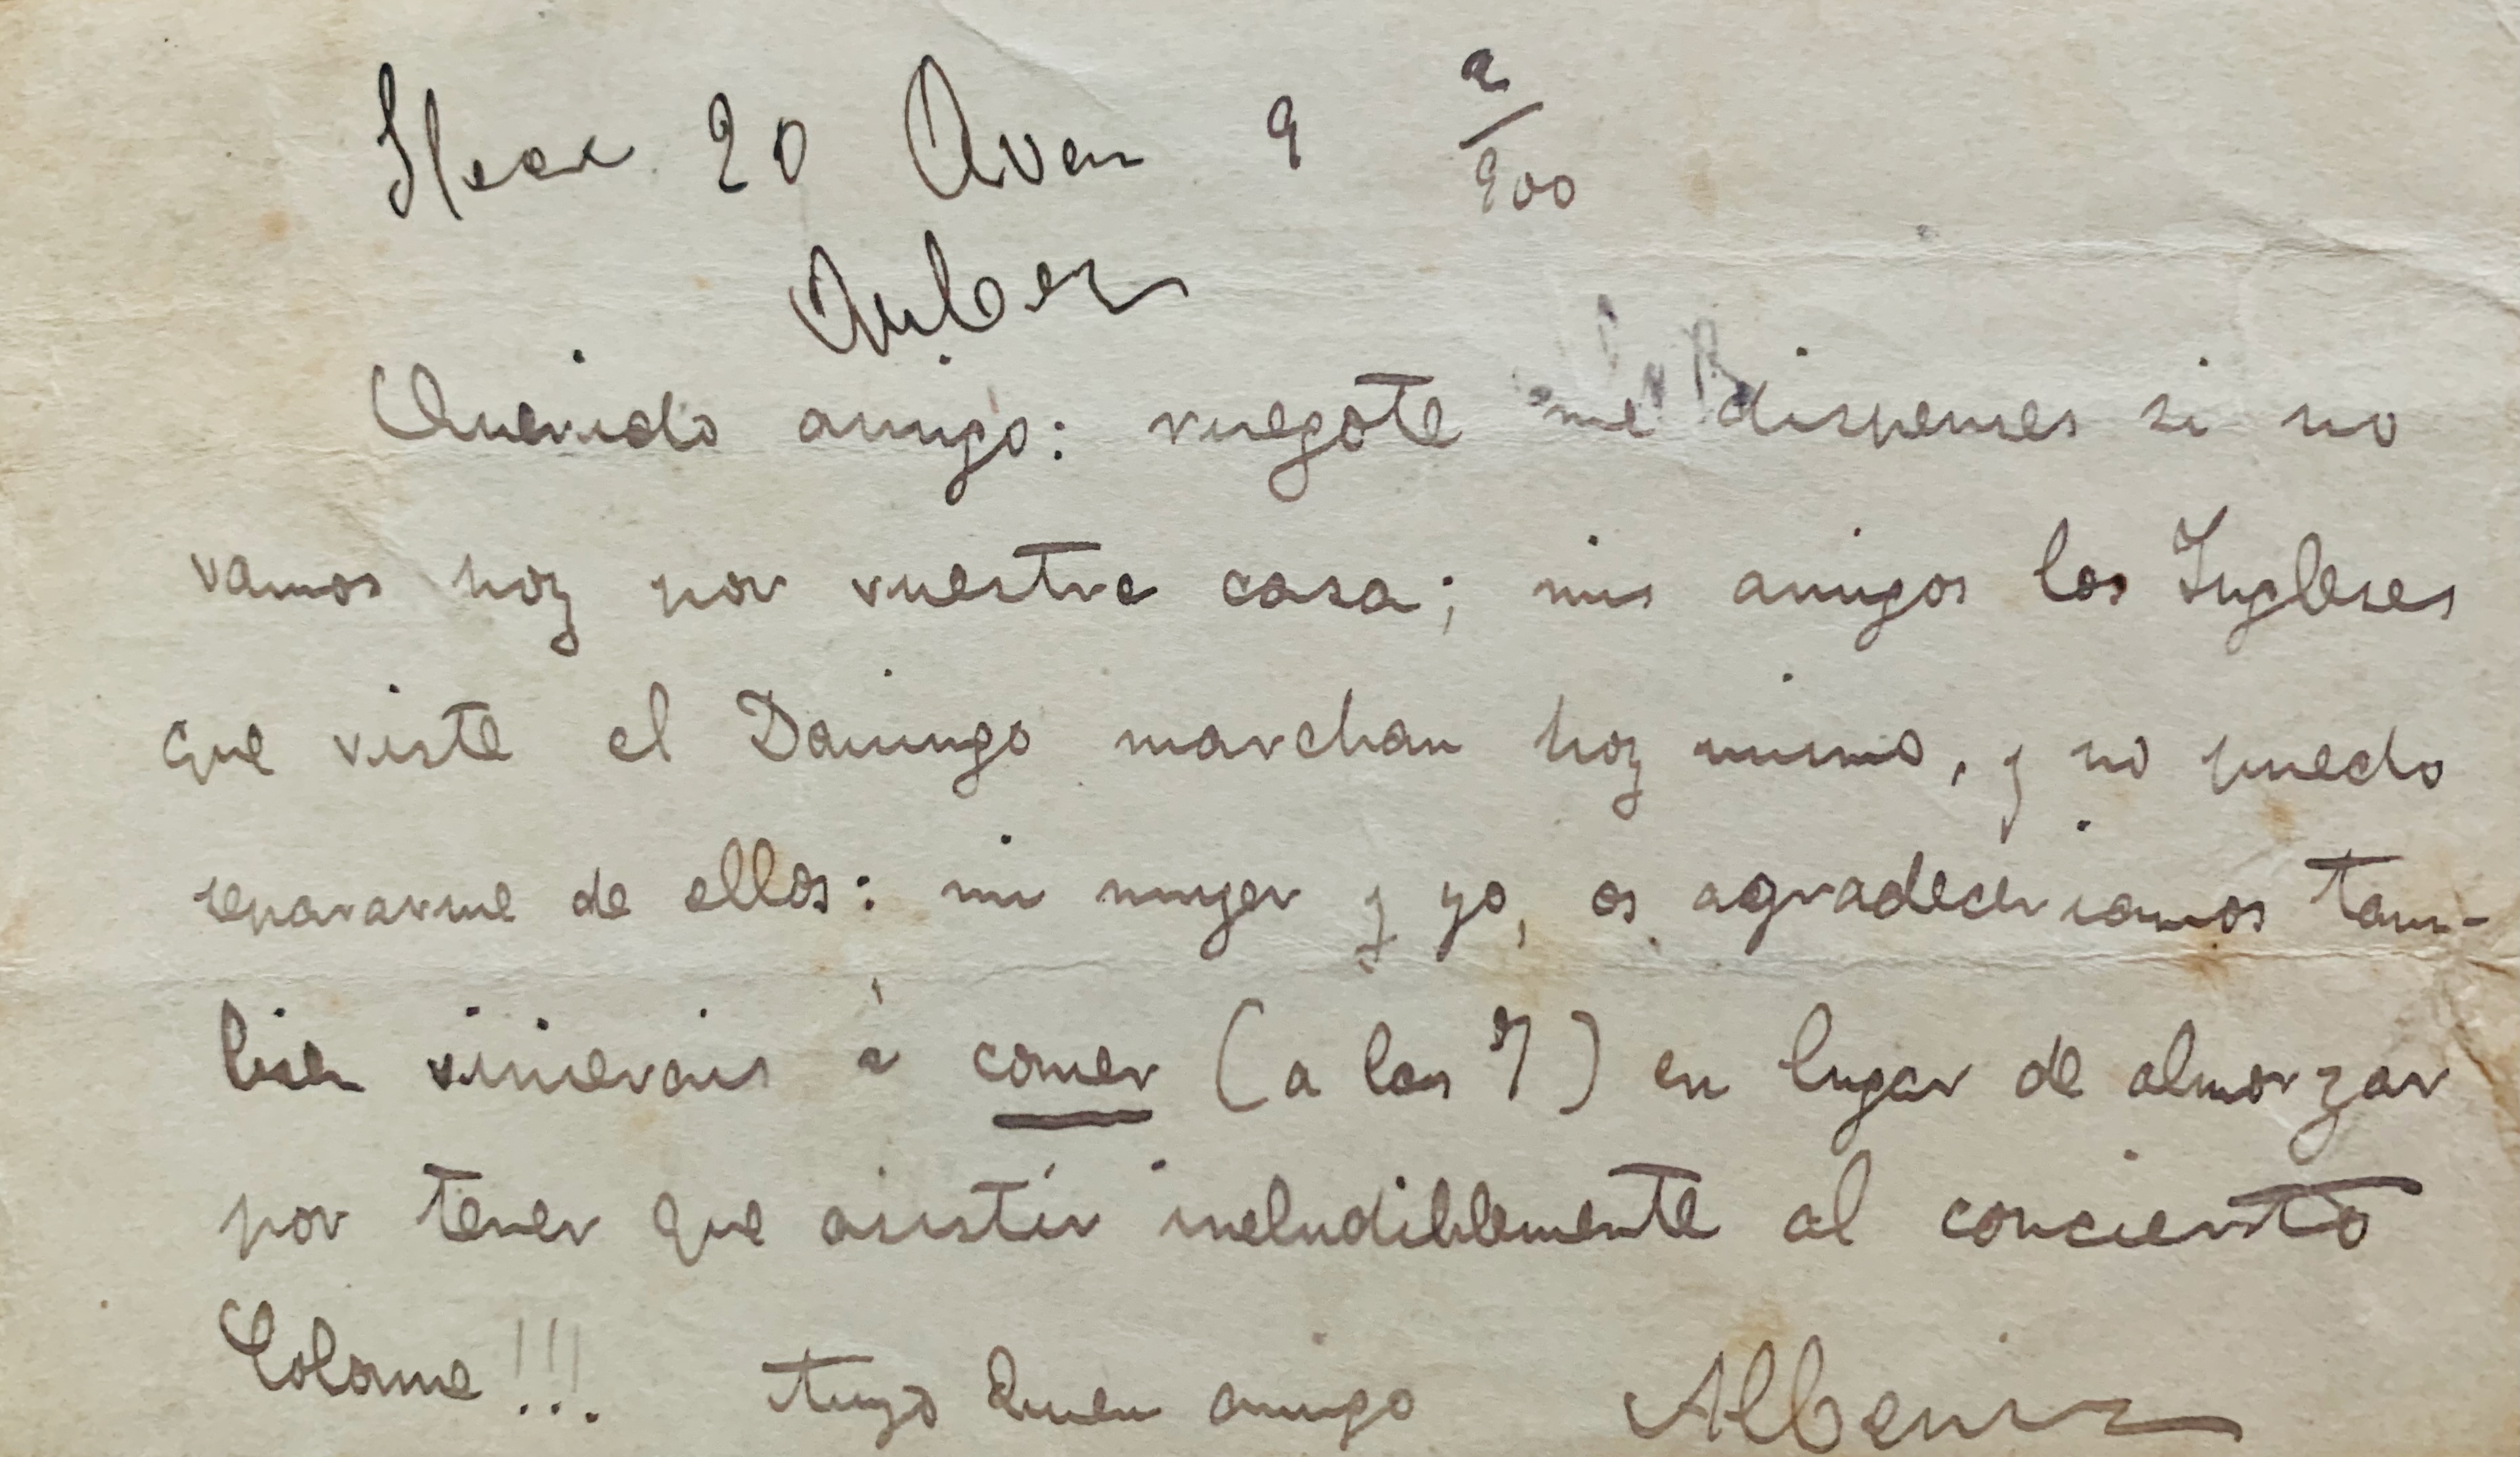 20 9 2/900
Querido amigo: ruegote me dispenses si no
vamos hoy por vuestra casa; mis amigos los Ingleses
que viste el Domingo marchan hoy mismo, y no puedo
separarme de ellos: mi mujer y yo, os agradeceriamos tam-
bien vinierais á comer (a las 7) en lugar de almorzar
por tener que asistír ineludiblemente al concierto
Colonne!!! tuyo buen amigo Albeniz